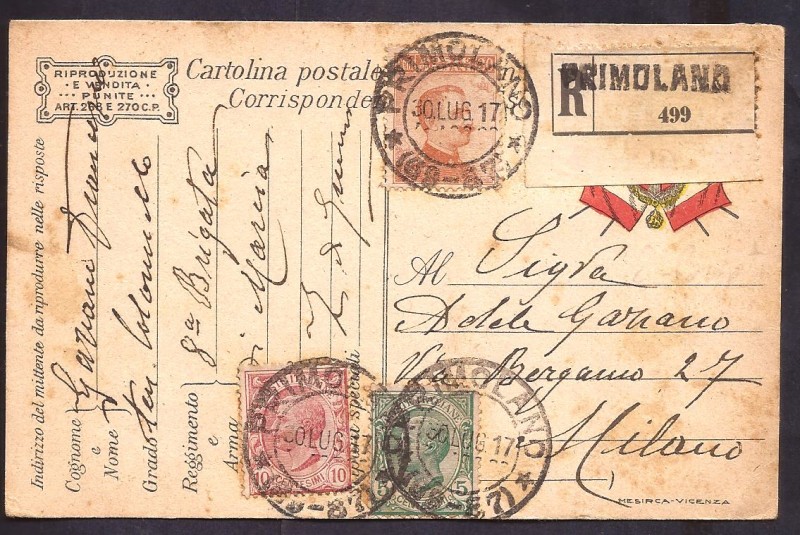 RIPRODUZIONE
E VENDITA
PUNITE
ART. 268 E 270 C.P.
Cartolina postale
Corrisponden
PRIMOLANO
30.LUG.17
R
PRIMOLANO
499
Al Sigra
Adele Gaviano
Via Bergamo 27
Milano
Indirizzo del mittente da riprodurre nelle risposte
Cognome
e
Nome
Grado Ten. Colonnello
Reggimento
e
Arma
8a Brigata
di Marcia
speciali
CENTESIMI
10
PRIMOLANO
30.LUG.17
CENTESIMI
5
PRIMOLANO
30.LUG.17
MESIRCA-VICENZA